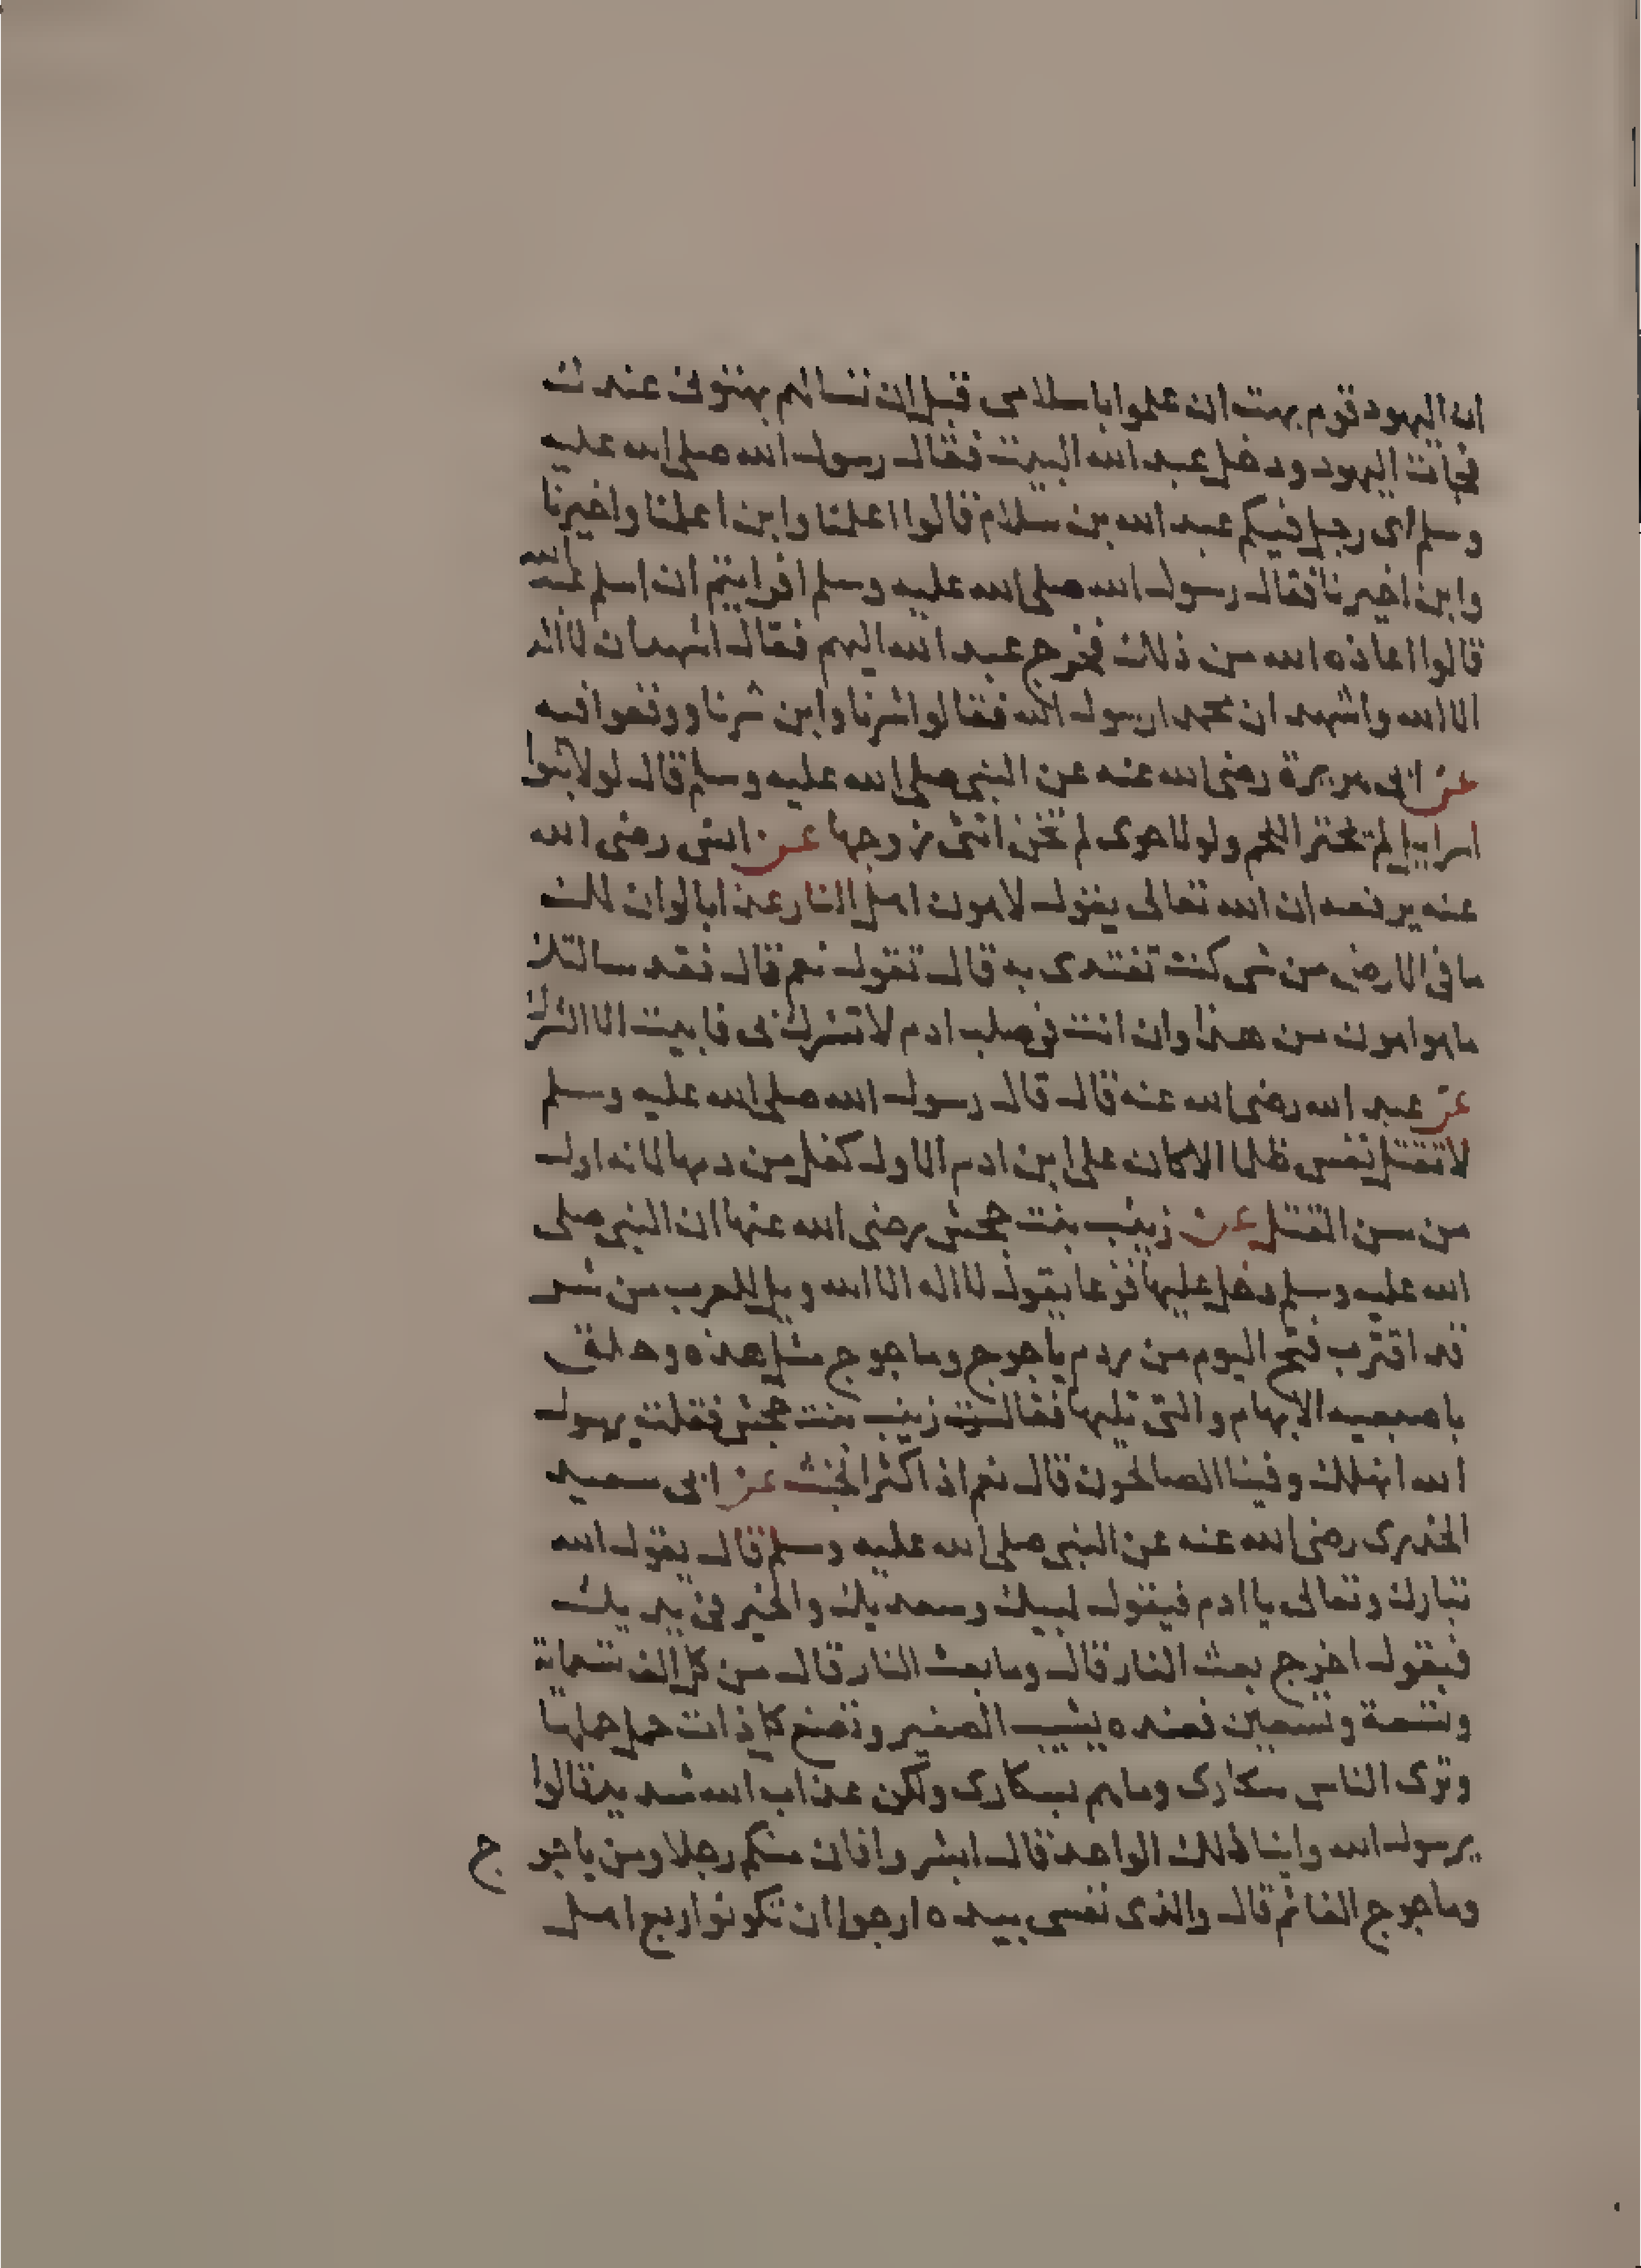 ان اليهود قوم بهت ان علموا باسلامى قبل ان تسالهم بهتونى عندك
فجأت اليهود ودخل عبد الله البيت فقال رسول الله صلى الله عليه
وسلم اى رجل فيكم عبد الله بن سلام قالوا اعلمنا وابن اعلمنا واخيرنا
وابن اخيرنا فقال رسول الله صلى الله عليه وسلم افرايتم ان اسلم
قالوا اعاذه الله من ذلك فخرج عبد الله اليهم فقال اشهد ان لا اله
الا الله واشهد ان محمدا رسول الله فقالوا شرنا وابن شرنا ووقعوا فيه
عن ابى هريرة رضى الله عنه عن النبى صلى الله عليه وسلم قال لولا بنوا
اسراييل لم تخنز اللحم ولولا حوى لم تخن انثى زوجها عن انس رضى الله
عنه يرفعه ان الله تعالى يقول لاهون اهل النار عذابا لو ان لك
ما فى الارض من شى كنت تفتدى به قال تقول نعم قال فقد سالتك
ما هو اهون من هذا وان انت فى صلب ادم لا تشرك بى فابيت الا الشرك
عن عبد الله رضى الله عنه قال قال رسول الله صلى الله عليه وسلم
لا تقتل نفس ظلما الا كان على ابن ادم الاول كفل من دمها لانه اول
من سن القتل عن زينب بنت جحش رضى الله عنها ان النبى صلى
الله عليه وسلم دخل عليها فزعا يقول لا اله الا الله ويل للعرب من شر
قد اقترب فتح اليوم من ردم ياجوج وماجوج مثل هذه وحلق
باصبعيه الابهام والتى تليها فقالت زينب بنت جحش فقلت يرسول
الله انهلك وفينا الصالحون قال نعم اذا كثر الخبث عن ابى سعيد
الخدرى رضى الله عنه عن النبى صلى الله عليه وسلم قال يقول الله
تبارك وتعالى يا ادم فيقول لبيك وسعديك والخير فى يديك
فيقول اخرج بعث النار قال وما بعث النار قال من كل الف تسعماية
وتسعة وتسعين فعنده يشيب الصغير وتضع كل ذات حمل حملها
وترى الناس سكارى وما هم بسكارى ولكن عذاب الله شديد قالوا
يرسول الله واينا ذلك الواحد قال ابشروا فان منكم رجلا ومن ياجوج
وماجوج الفا ثم قال والذى نفسى بيده ارجوا ان تكونوا ربع اهل